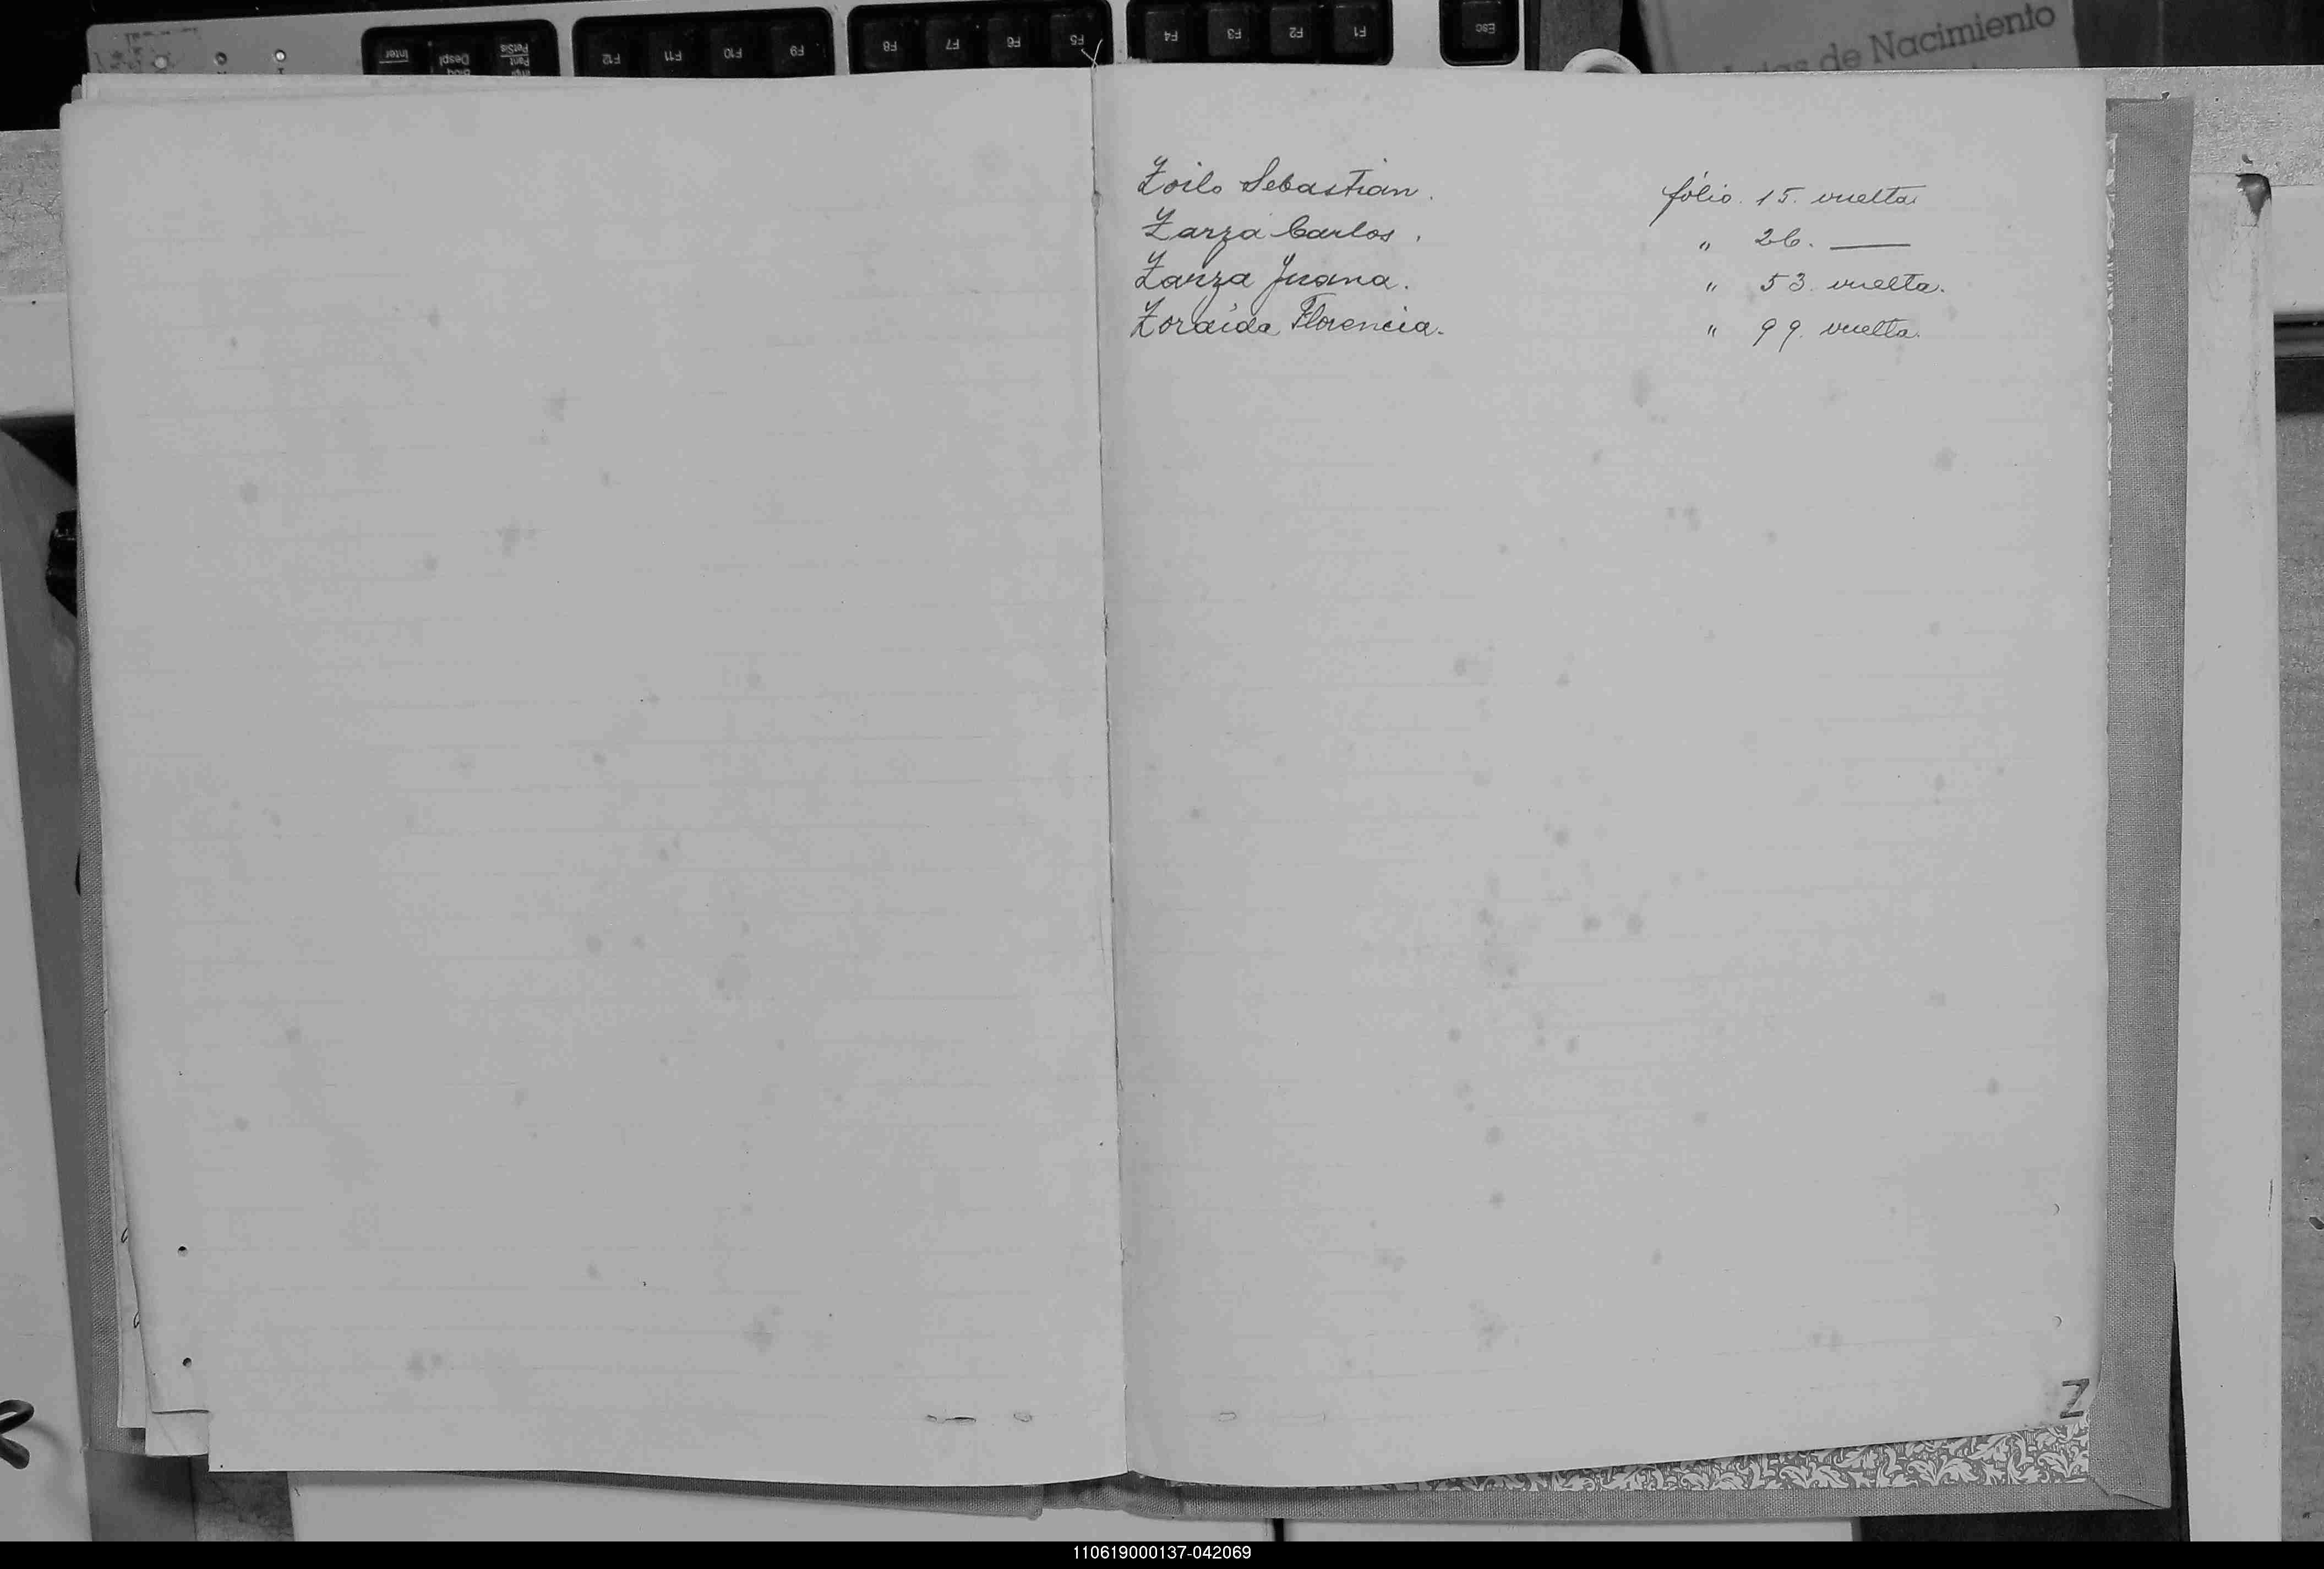 Inter
Despl
Bloq
PetSis
Pant
Impr
F12
F11
F10
F9
F8
F7
F6
F5
F4
F3
F2
F1
Esc
de Nacimiento
Zoilo Sebastián. fólio. 15. vuelta.
Zarza Carlos. " 26. ——
Zarza Juana. " 53. vuelta.
Zoraida Florencia. " 99. vuelta.
Z
110619000137-042069